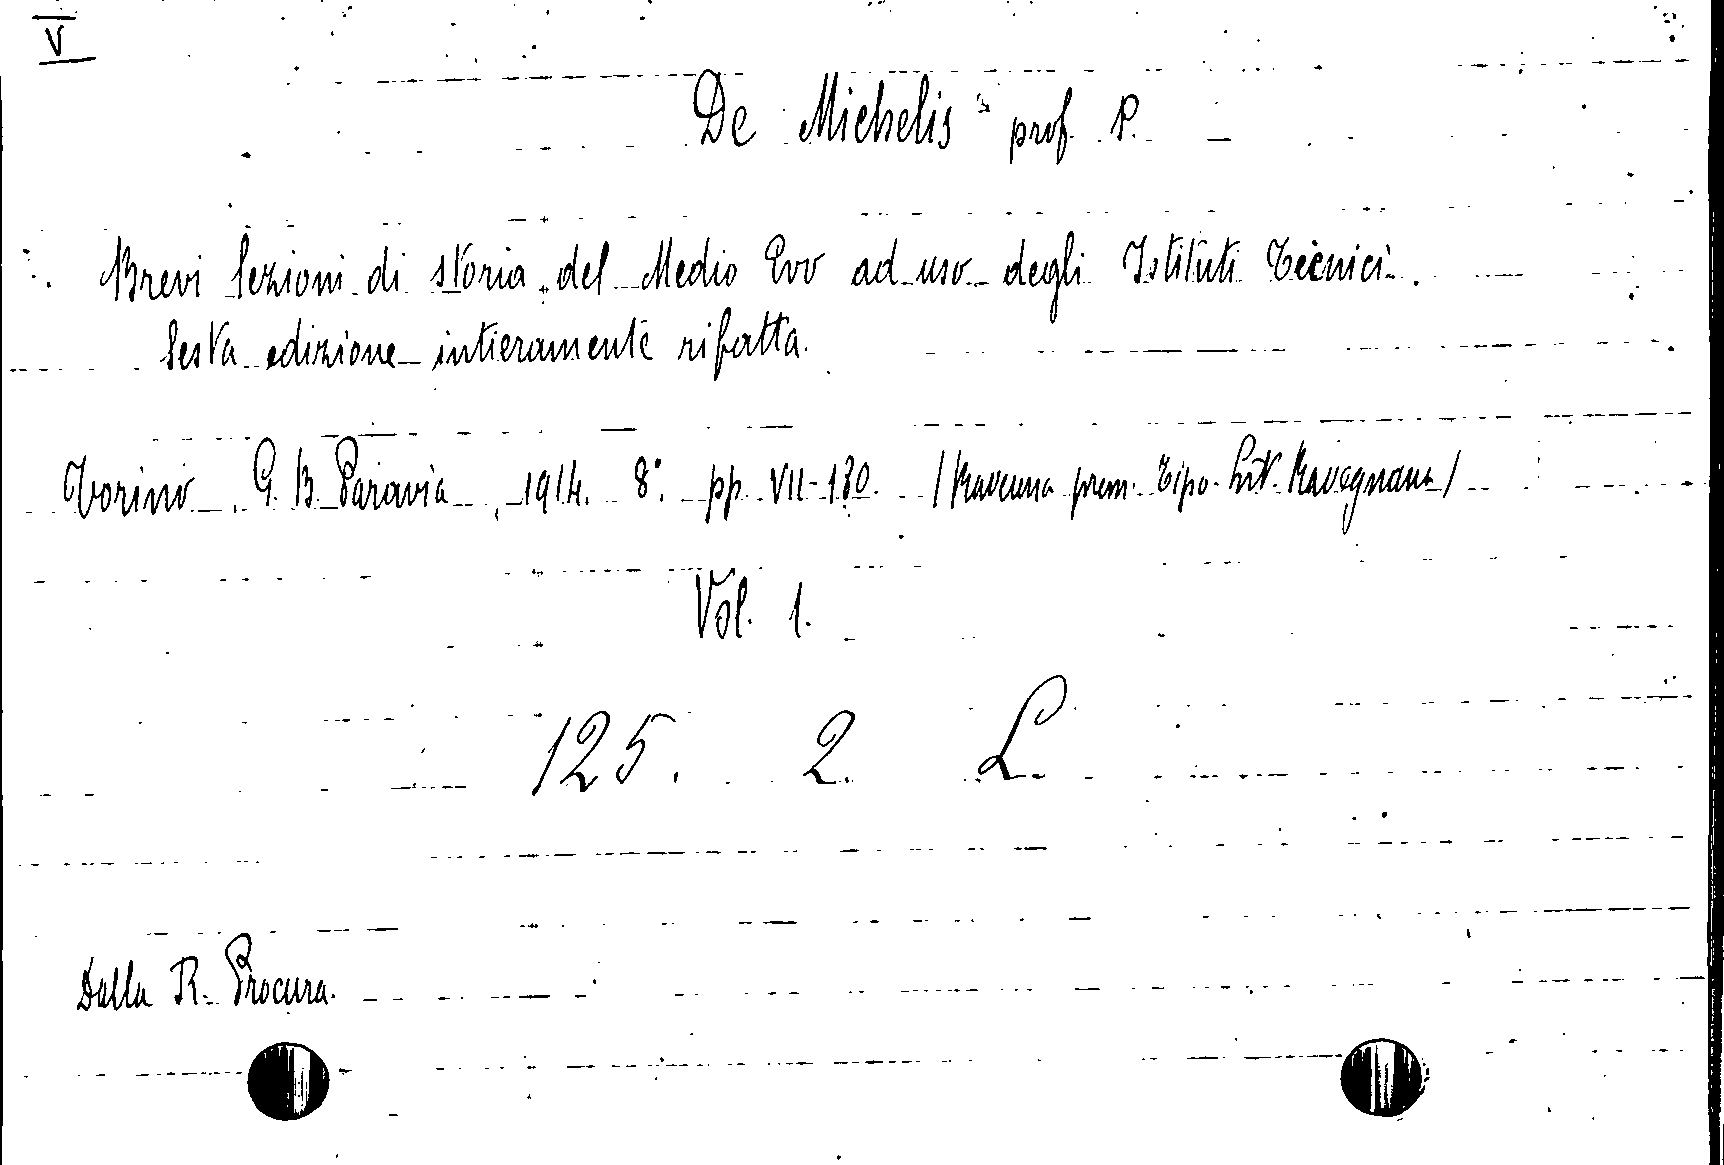 V
De Michelis prof. P.
Brevi lezioni di storia del Medio Evo ad uso degli Istituti Tecnici.
Sesta edizione intieramente rifatta.
Torino, G. B. Paravia, 1914. 8°. pp. VII-130. (Ravenna prem. Tipo-Lit. Ravegnana)
Vol. 1.
125. 2. L.
Dalla R. Procura.